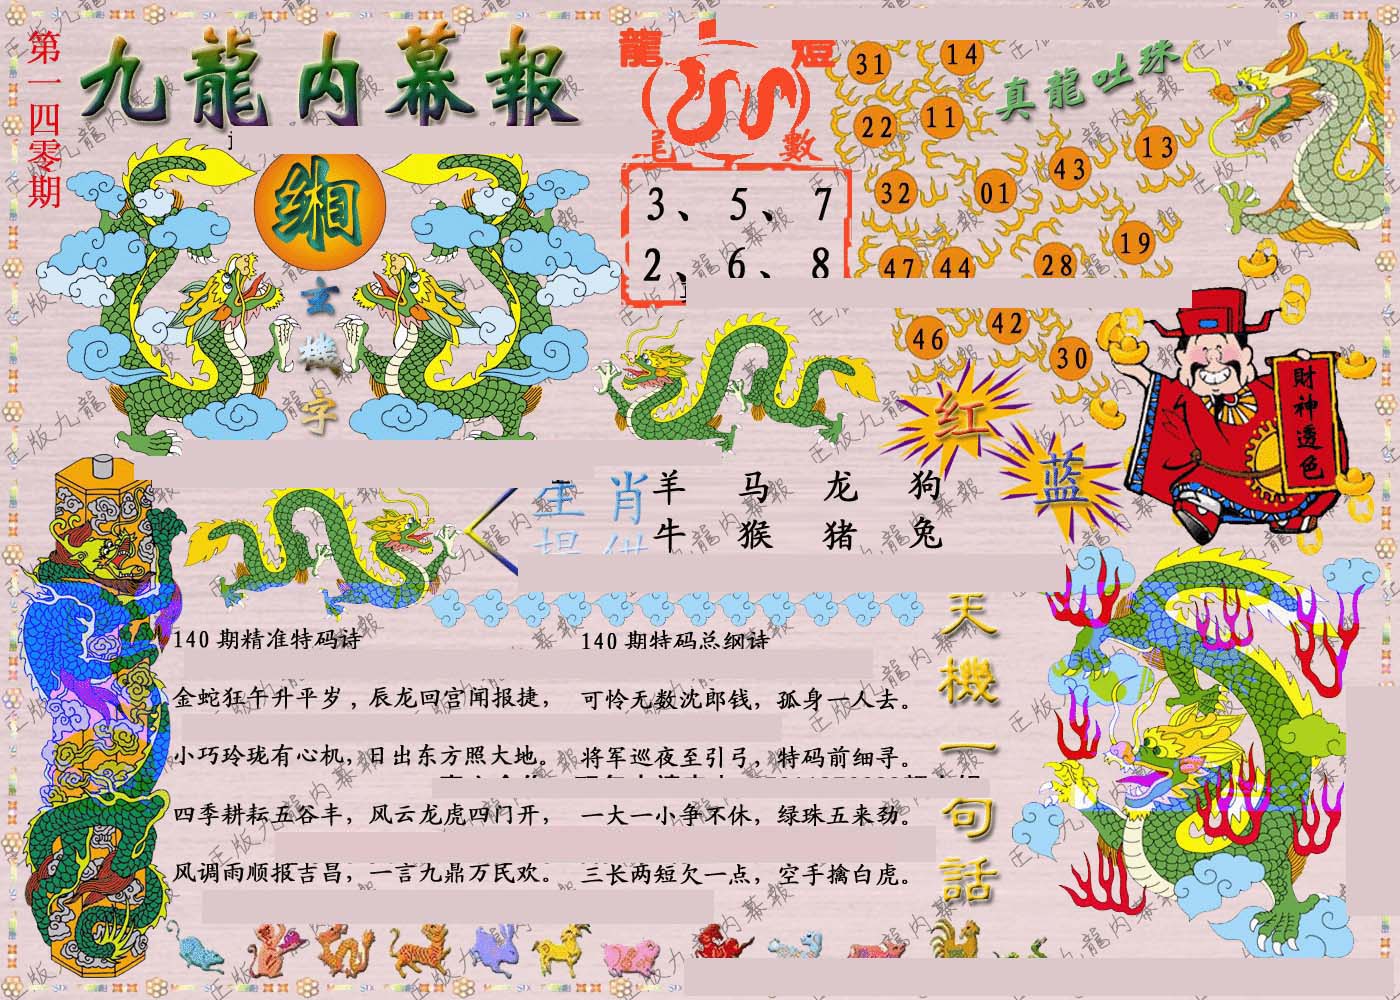 第一四零期
九龍内幕報
缃
玄機字
龍 燈
尾 數
3、5、7
2、6、8
真龍吐珠
31 14
22 11
13
43
32 01
19
47 44 28
46 42
30
红
蓝
財神透色
生肖
羊 马 龙 狗
牛 猴 猪 兔
140 期精准特码诗
金蛇狂午升平岁，辰龙回宫闻报捷，
小巧玲珑有心机，日出东方照大地。
四季耕耘五谷丰，风云龙虎四门开，
风调雨顺报吉昌，一言九鼎万民欢。
140 期特码总纲诗
可怜无数沈郎钱，孤身一人去。
将军巡夜至引弓，特码前细寻。
一大一小争不休，绿珠五来劲。
三长两短欠一点，空手擒白虎。
天機一句話
正版九龍内幕報